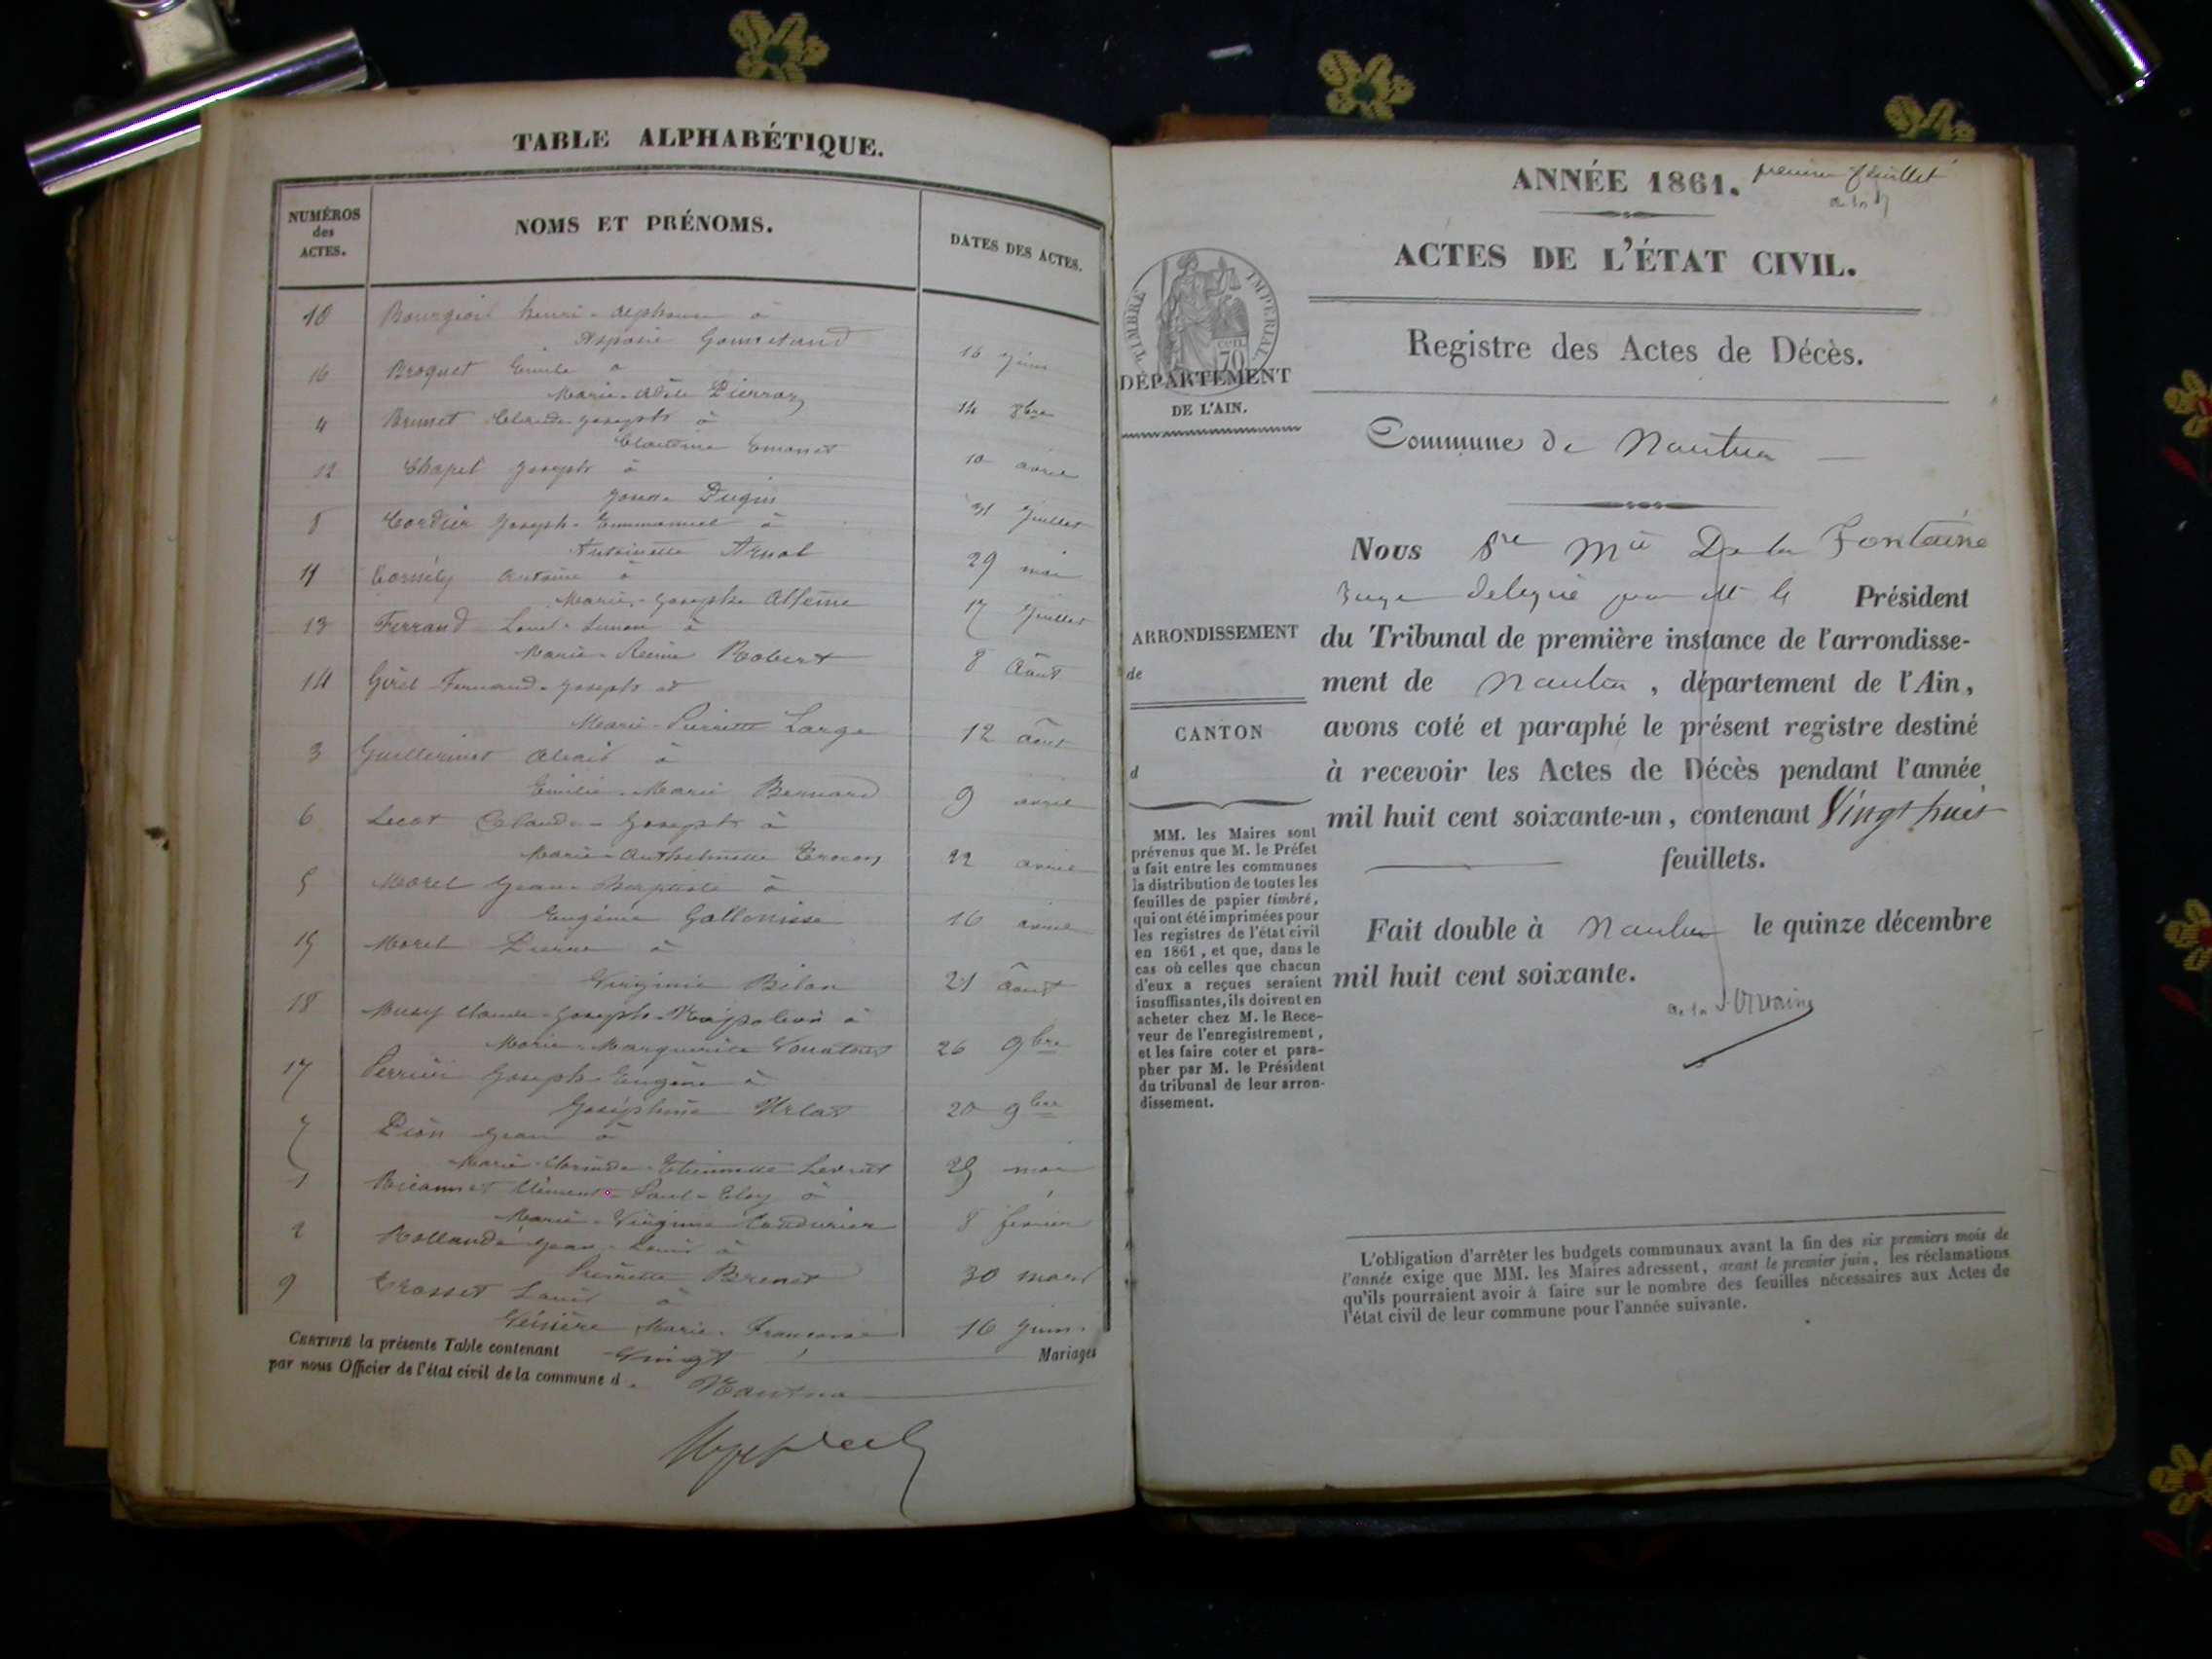 TABLE ALPHABÉTIQUE.
NUMÉROS des ACTES.
NOMS ET PRÉNOMS.
DATES DES ACTES.
10 Bourgeois henri-alphonse à
Gonnetand 16 juin
16 Broquet Emile à
Marie-Adèle Pierraz 14 8bre
4 Brunet Claude-Joseph à
Claudine Emonet 10 avril
12 Chapel Joseph à
Dugin 31 Juillet
8 Cordier Joseph-Emmanuel à
Antoinette Arnol 29 mai
11 Cornély Antoine à
Marie-Josephe 17 Juillet
13 Ferrand à
Marie-Reine Robert 8 Août
14 Girel Fernand-Joseph et
Marie-Pierrette Large 12 août
3 Guillermet Alexis à
Emilie-Marie Bernard 9 avril
6 Lecot Claude-Joseph à
Marie-Anthelmette 22 avril
5 Morel Jean-Baptiste à
Eugénie 16 avril
15 Morel Pierre à
Virginie 21 Août
18 Musy Claude-Joseph-Napoléon à
Marie-Marguerite 26 9bre
17 Perrier Joseph-Eugène à
Joséphine 20 9bre
7 Pion Jean à
Marie-Clorinde-Etiennette Levrat 25 mai
1 Clément-Paul-Eloy à
Marie-Virginie 8 février
2 Jean-Louis à
Pierrette 30 mars
9 Grosset Louis à
Marie-Françoise 16 Juin.
CERTIFIÉ la présente Table contenant Vingt Mariages
par nous Officier de l'état civil de la commune d. Nantua
ANNÉE 1861. premier feuillet
ACTES DE L'ÉTAT CIVIL.
Registre des Actes de Décès.
TIMBRE IMPÉRIAL
70
DÉPARTEMENT
DE L'AIN.
Commune de Nantua
ARRONDISSEMENT
de
CANTON
d
MM. les Maires sont
prévenus que M. le Préfet
a fait entre les communes
la distribution de toutes les
feuilles de papier timbré,
qui ont été imprimées pour
les registres de l'état civil
en 1861, et que, dans le
cas où celles que chacun
d'eux a reçues seraient
insuffisantes, ils doivent en
acheter chez M. le Rece-
veur de l'enregistrement,
et les faire coter et para-
pher par M. le Président
du tribunal de leur arron-
dissement.
Nous De la Fontaine
Juge delegué par Mr le Président
du Tribunal de première instance de l'arrondisse-
ment de Nantua, département de l'Ain,
avons coté et paraphé le présent registre destiné
à recevoir les Actes de Décès pendant l'année
mil huit cent soixante-un, contenant Vingt huit
feuillets.
Fait double à Nantua le quinze décembre
mil huit cent soixante.
L'obligation d'arrêter les budgets communaux avant la fin des six premiers mois de
l'année exige que MM. les Maires adressent, avant le premier juin, les réclamations
qu'ils pourraient avoir à faire sur le nombre des feuilles nécessaires aux Actes de
l'état civil de leur commune pour l'année suivante.